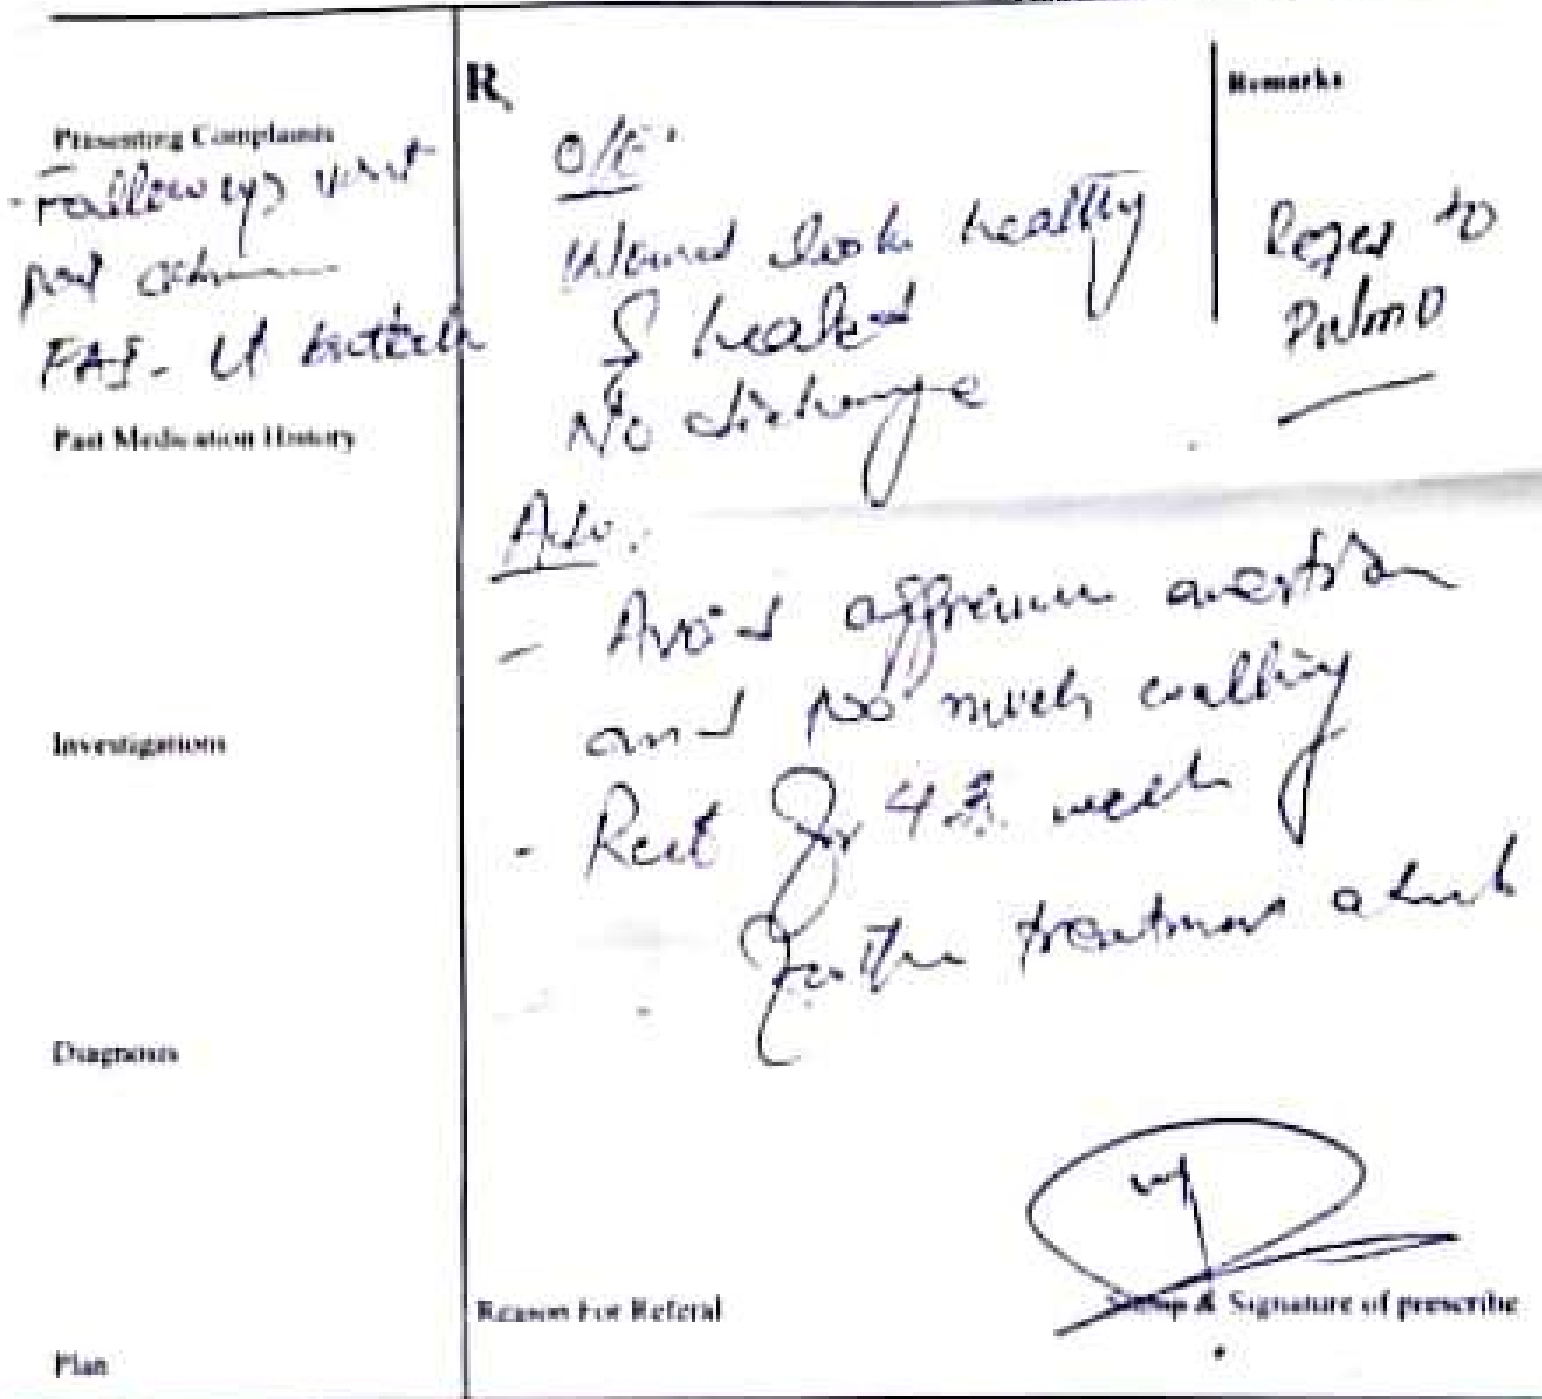 R
Remarks
Presenting Complaints
- Follow up visit
post
FAI - Lt buttock
Past Medication History
Investigations
Diagnosis
Plan
O/E
Wound look healthy
& healed
No discharge
Adv.
- Avoid
and No much walking
- Rest for 4 week
Further treatment
Refer to
Reason For Referal
Stamp & Signature of prescribe